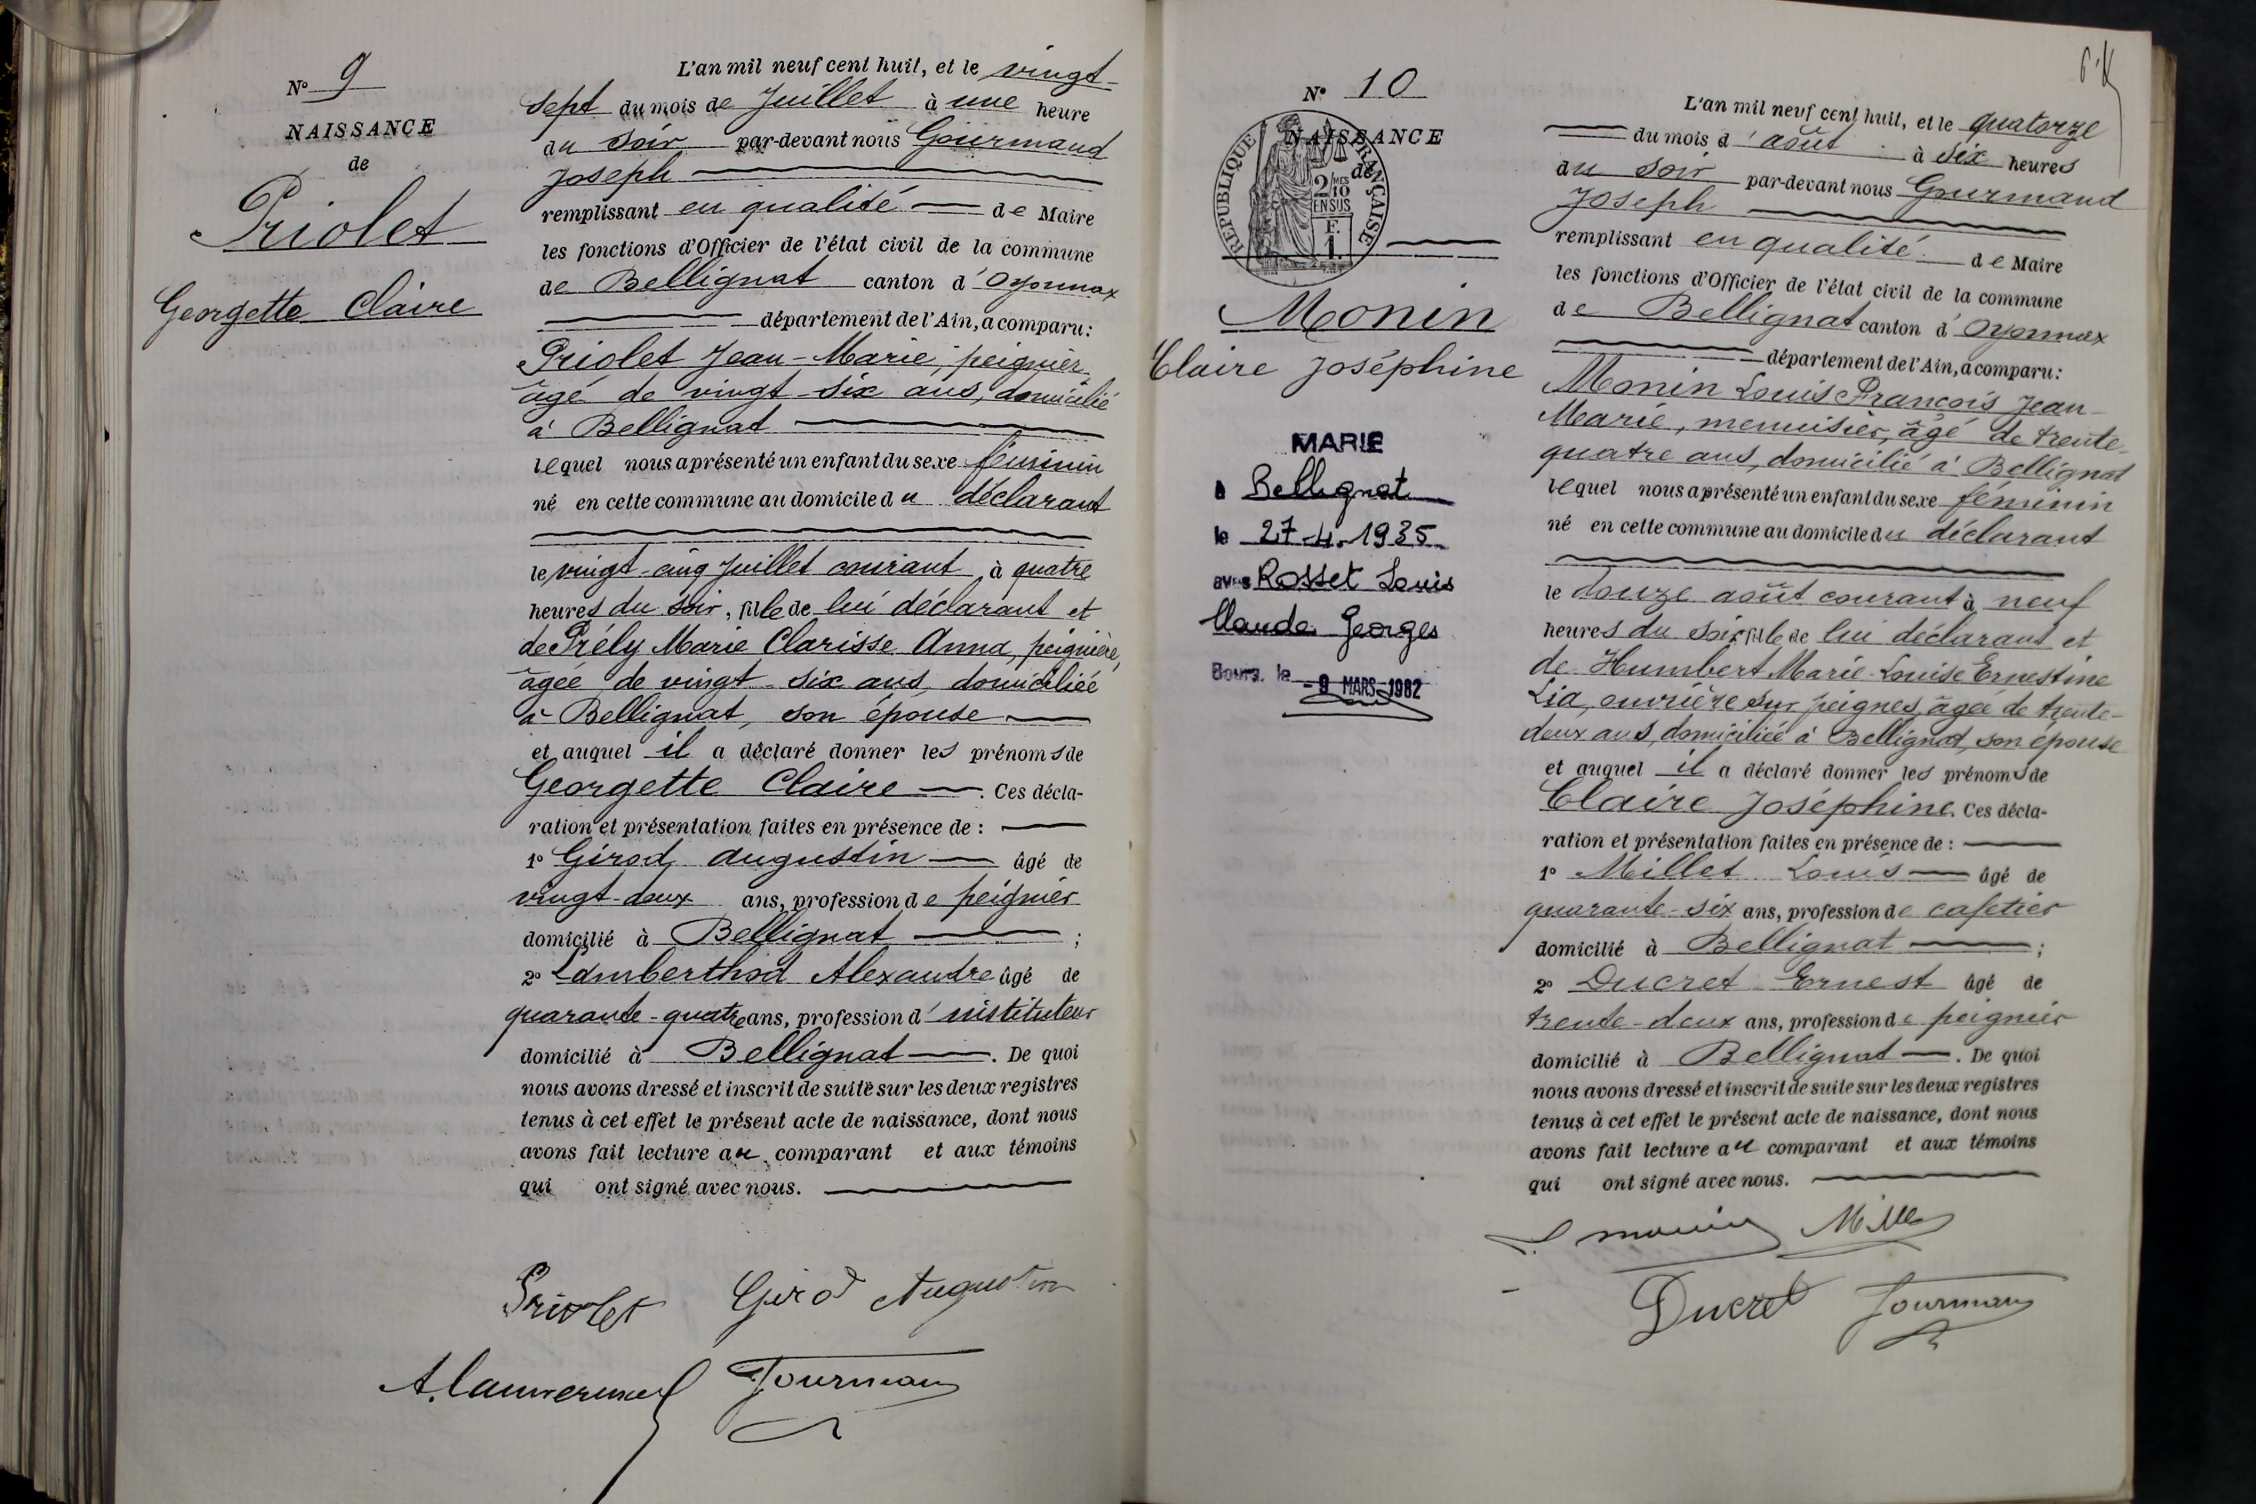 N° 9
NAISSANCE
de
Priolet
Georgette Claire
L'an mil neuf cent huit, et le vingt-
sept du mois de Juillet à une heure
du soir par-devant nous Gourmand
Joseph
remplissant en qualité de Maire
les fonctions d'Officier de l'état civil de la commune
de Bellignat canton d'Oyonnax
département de l'Ain, a comparu:
Priolet Jean-Marie, peignier
âgé de vingt-six ans, domicilié
à Bellignat
lequel nous a présenté un enfant du sexe féminin
né en cette commune au domicile du déclarant
le vingt-cinq Juillet courant à quatre
heures du soir, fille de lui déclarant et
de Prély Marie Clarisse Anna, peignière,
âgée de vingt-six ans, domiciliée
à Bellignat, son épouse
et auquel il a déclaré donner les prénoms de
Georgette Claire. Ces décla-
ration et présentation faites en présence de :
1° Girod Augustin âgé de
vingt-deux ans, profession de peignier
domicilié à Bellignat ;
2° Lamberthod Alexandre âgé de
quarante-quatre ans, profession d'instituteur
domicilié à Bellignat. De quoi
nous avons dressé et inscrit de suite sur les deux registres
tenus à cet effet le présent acte de naissance, dont nous
avons fait lecture au comparant et aux témoins
qui ont signé avec nous.
Priolet Girod Augustin
Gourmand
N° 10
NAISSANCE
de
RÉPUBLIQUE FRANÇAISE
2/10 MES
EN SUS
F.
1.
Monin
Claire Joséphine
MARIE
à Bellignat
le 27-4-1935
avec Rosset Louis
Claude Georges
Bourg, le -9 MARS 1982
L'an mil neuf cent huit, et le quatorze
du mois d'août à six heures
du soir par-devant nous Gourmand
Joseph
remplissant en qualité de Maire
les fonctions d'Officier de l'état civil de la commune
de Bellignat canton d'Oyonnax
département de l'Ain, a comparu:
Monin Louis François Jean-
Marie, menuisier, âgé de trente-
quatre ans, domicilié à Bellignat
lequel nous a présenté un enfant du sexe féminin
né en cette commune au domicile du déclarant
le douze août courant à neuf
heures du soir, fille de lui déclarant et
de Humbert Marie-Louise Ernestine
Lia, ouvrière sur peignes, âgée de trente-
deux ans, domiciliée à Bellignat, son épouse
et auquel il a déclaré donner les prénoms de
Claire Joséphine. Ces décla-
ration et présentation faites en présence de :
1° Millet Louis âgé de
quarante-six ans, profession de cafetier
domicilié à Bellignat ;
2° Ducret Ernest âgé de
trente-deux ans, profession de peignier
domicilié à Bellignat. De quoi
nous avons dressé et inscrit de suite sur les deux registres
tenus à cet effet le présent acte de naissance, dont nous
avons fait lecture au comparant et aux témoins
qui ont signé avec nous.
L. Monin Millet
Ducret Gourmand